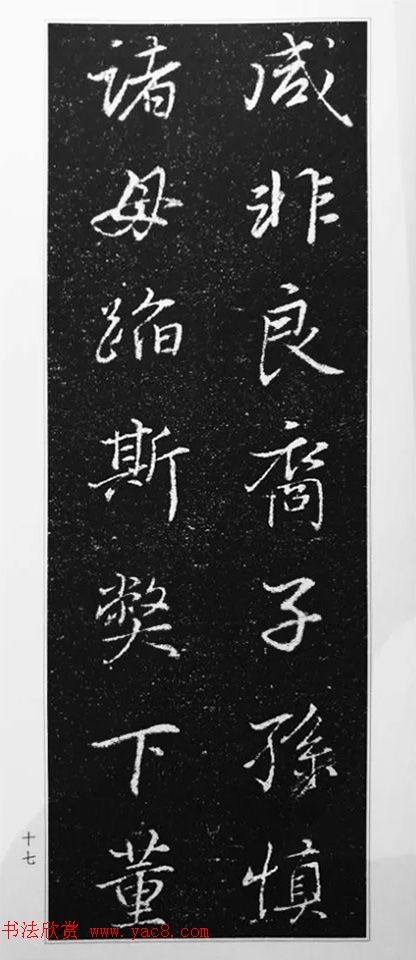 咸非良裔子孫慎
諸毋蹈斯弊下董
十七
书法欣赏 www.yac8.com